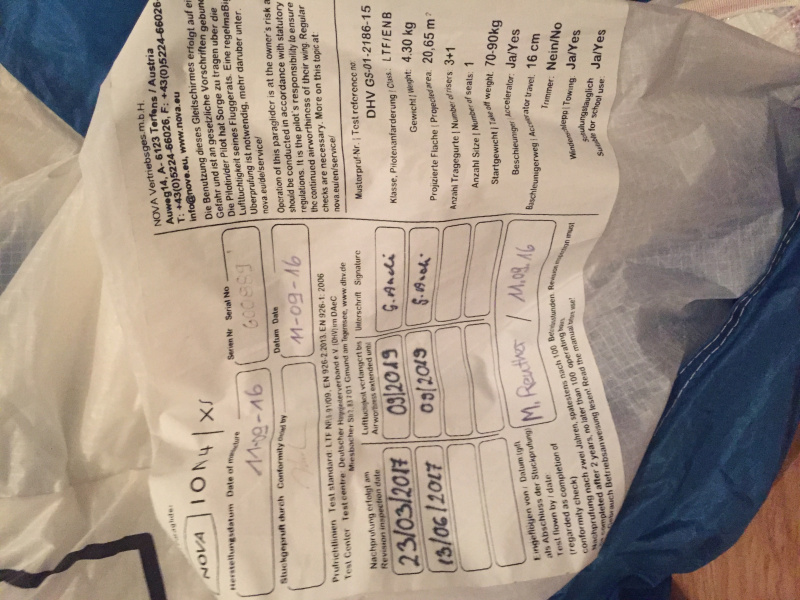 NOVA Vertriebsges.m.b.H.
Auweg14, A- 6123 Terfens / Austria
T: +43(0)5224-66026, F: +43(0)5224-66026-
info@nova.eu, www.nova.eu
Die Benutzung dieses Gleitschirmes erfolgt auf
Gefahr und ist an gesetzliche Vorschriften
Die Pilotin/der Pilot hat Sorge zu tragen über die
Lufttüchtigkeit seines Fluggeräts. Eine regelmäßig
Überprüfung ist notwendig, mehr darüber unter:
nova.eu/de/service/
Operation of this paraglider is at the owner's risk a
should be conducted in accordance with statutory
regulations. It is the pilot's responsibility to ensure
the continued airworthiness of their wing. Regular
checks are necessary. More on this topic at:
nova.eu/en/service/
NOVA ION4 | XS
Herstellungsdatum Date of
11-09-16
Serien Nr Serial No
Stückgeprüft durch Conformity by
Datum Date
11-09-16
Prüfrichtlinien Test standard: LTF NfL 91/09, EN 926-2:2013, EN 926-1: 2006
Test Center Test centre Deutscher Hängegleiterverband e.V. (DHV) im DAeC
Miesbacher Str. 83701 Gmund am Tegernsee, www.dhv.de
Nachprüfung erfolgt am
Revision inspection date
Lufttüchtigkeit verlängert bis
Airworthiness extended until
Unterschrift Signature
23/03/2017 09/2019
13/06/2017 09/2019
Musterprüf Nr. | Test reference no
DHV GS-01-2186-15
Klasse, Pilotenanforderung | Class: LTF/ENB
Gewicht | Weight: 4.30 kg
Projizierte Fläche | Projected area: 20,65 m²
Anzahl Tragegurte | Number of risers: 3+1
Anzahl Sitze | Number of seats: 1
Startgewicht | Take off weight: 70-90kg
Beschleuniger | Accelerator: Ja/Yes
Beschleunigerweg | Accelerator travel: 16 cm
Trimmer: Nein/No
Windenschlepp | Towing: Ja/Yes
Schulungstauglich
Suitable for school use: Ja/Yes
Eingeflogen von / Datum (gilt
als Abschluss der Stückprüfung)
Test flown by / date:
(regarded as completion of
conformity check)
M. Reuther / 11.09.16
Nachprüfung nach zwei Jahren, spätestens nach 100 Betriebsstunden. Revision inspection must
completed after 2 years, no later than 100 operating
Betriebsanweisung lesen! Read the manual